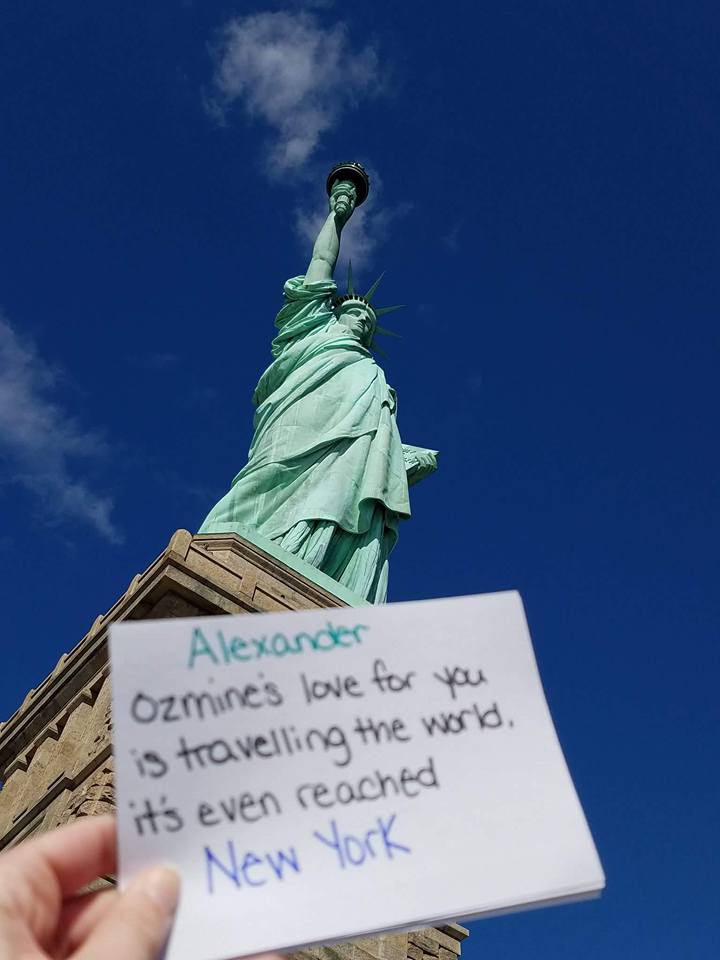 Alexander
Ozmine's love for you
is travelling the world.
it's even reached
New York